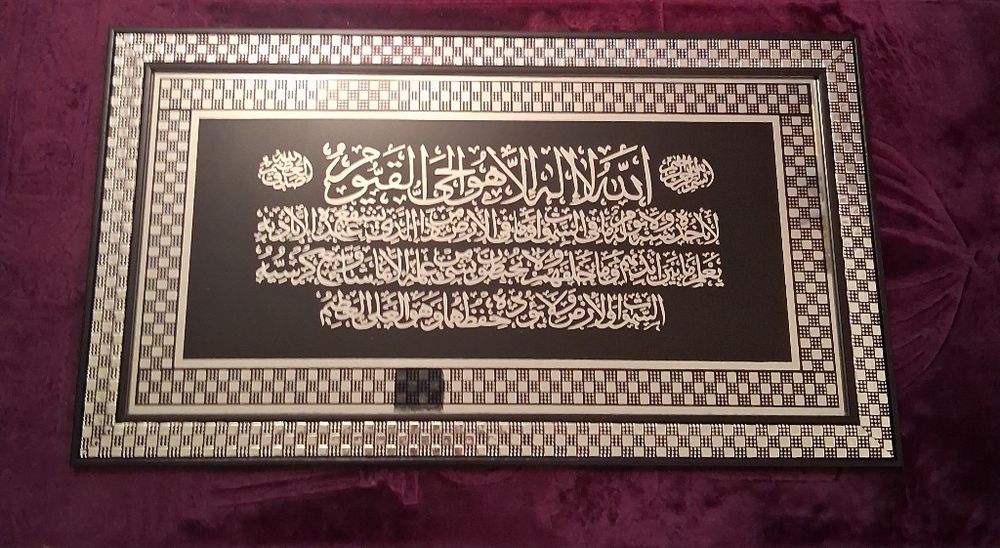 الله لا إله إلا هو الحي القيوم
لا تأخذه سنة ولا نوم له ما في السموات وما في الأرض من ذا الذي يشفع عنده إلا بإذنه
يعلم ما بين أيديهم وما خلفهم ولا يحيطون بشيء من علمه إلا بما شاء وسع كرسيه
السموات والأرض ولا يؤده حفظهما وهو العلي العظيم